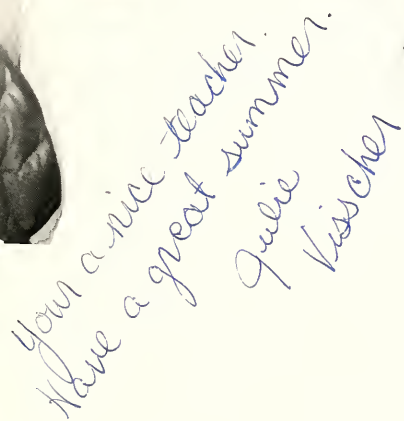 Your a nice teacher.
Have a great summer.
Julie
Visscher